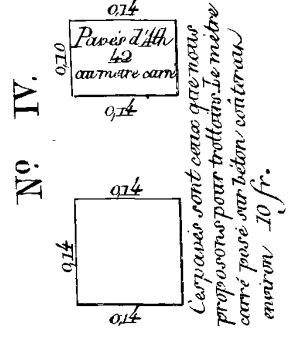 Nº IV.
0,14
0,10
Pavés d'Ath
42
au mètre carré
0,14
0,14
0,14
0,14
Ces pavés sont ceux que nous
proposons pour trottoirs. Le mètre
carré posé sur béton coûterait
environ 10 fr.